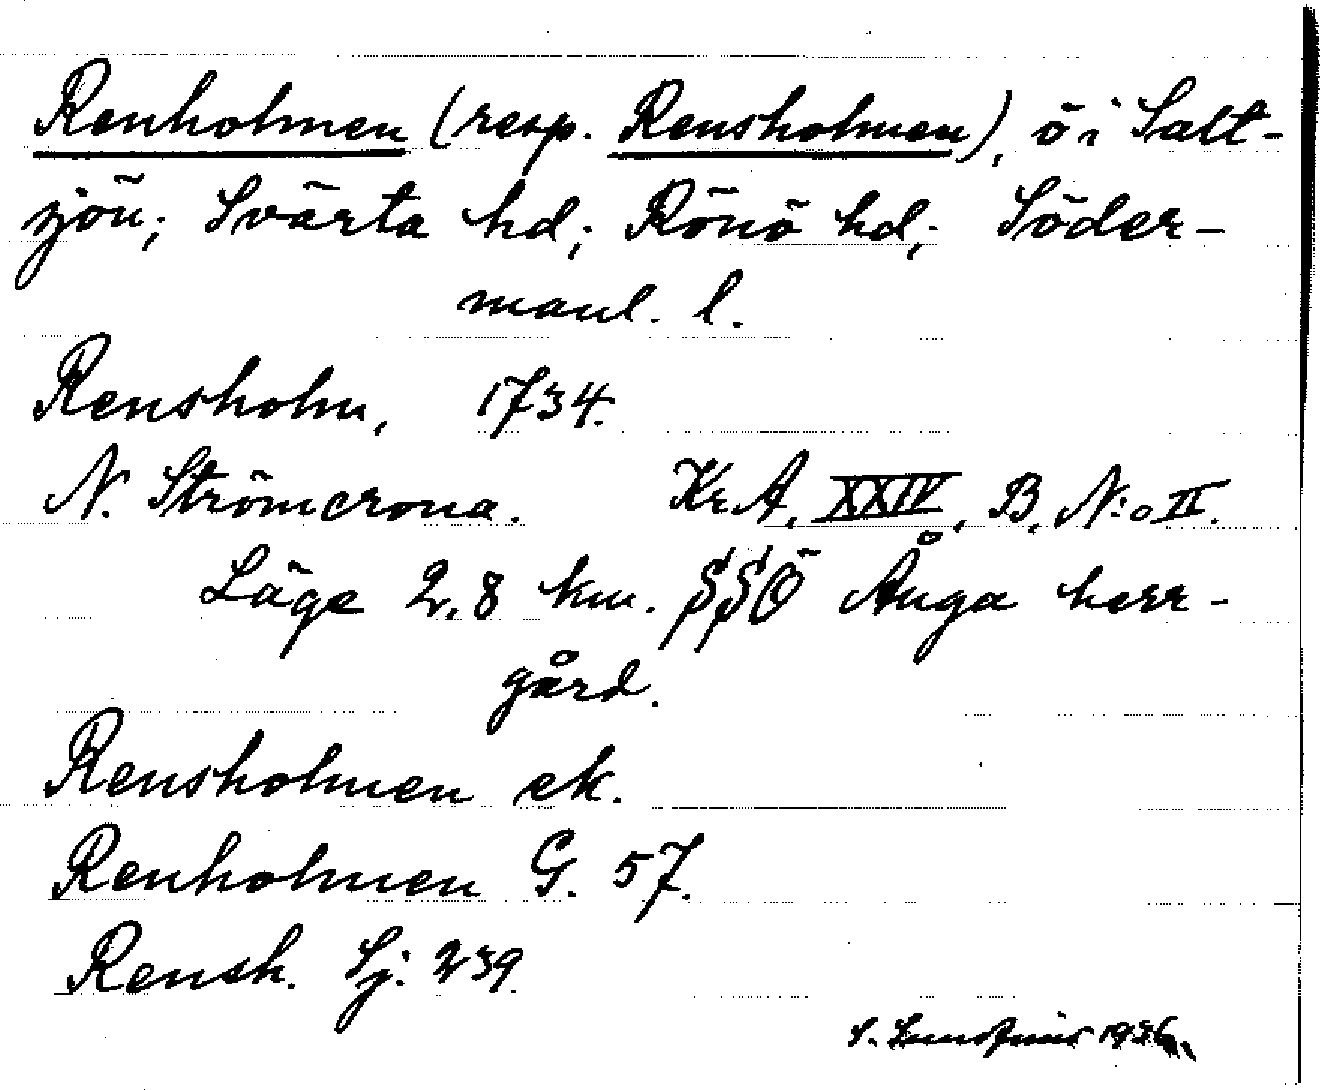 Renholmen (resp. Rensholmen), ö i Salt-
sjön; Svärta hd; Rönö hd; Söder-
manl. l.
Rensholm, 1734.
N. Strömcrona. Kr.A. XXIV, B, N:o II.
Läge 2,8 km. SSÖ Ånga herr-
gård.
Rensholmen ek.
Renholmen G. 57.
Rensh. Sj. 239.
S. 1936.